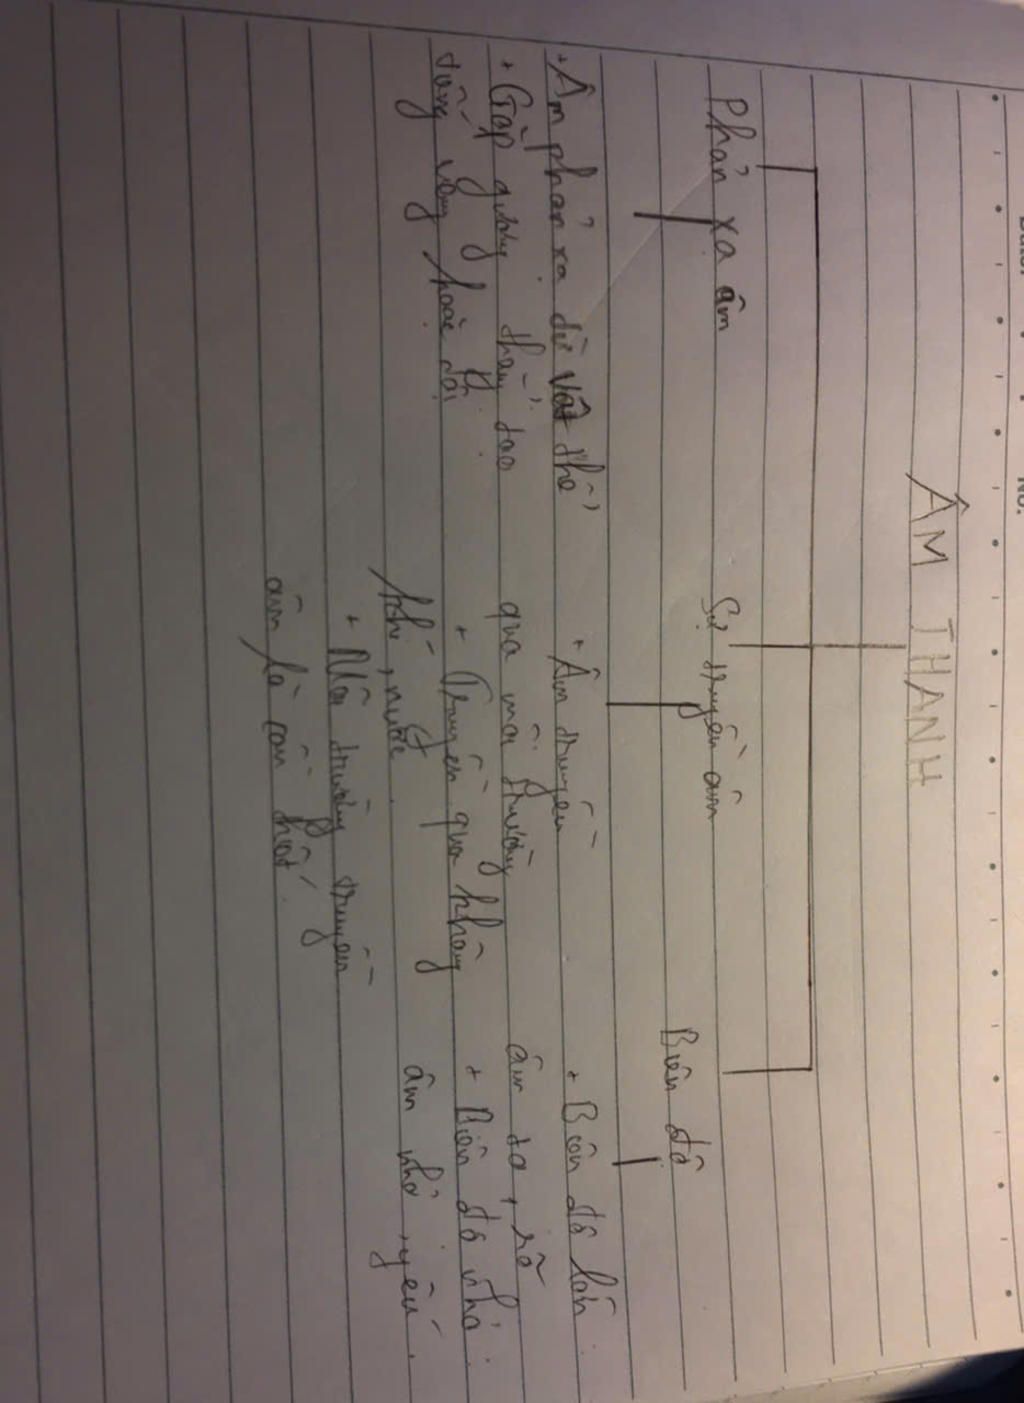 No.
ÂM THANH
Phản xạ âm
Sự truyền âm
Biên độ
+ Âm phản xạ từ vật thể
+ Gặp gương thẳng tạo
tiếng vọng hoặc dội
+ Âm truyền
qua môi trường
+ Truyền qua không
khí, nước.
+ Môi trường truyền
âm là cần thiết
+ Biên độ lớn
âm to, rõ
+ Biên độ nhỏ
âm nhỏ, yếu.